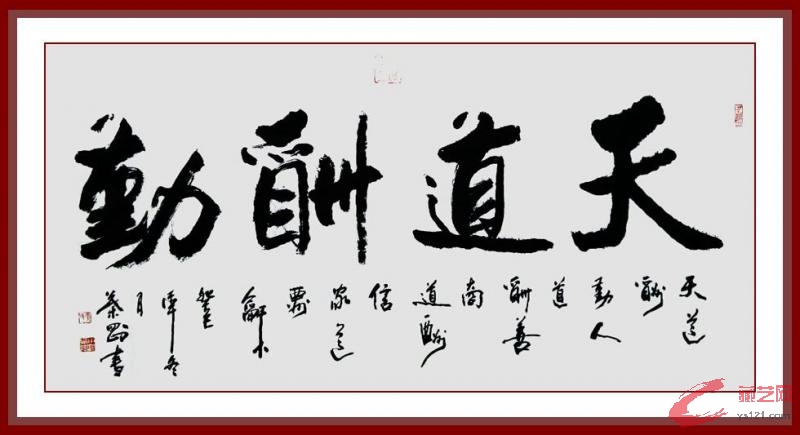 天道酬勤
天道
酬
勤人
道
酬善
商
道酬
信
家道
酬
龢
年冬
月
书
藏艺网
ys121.com